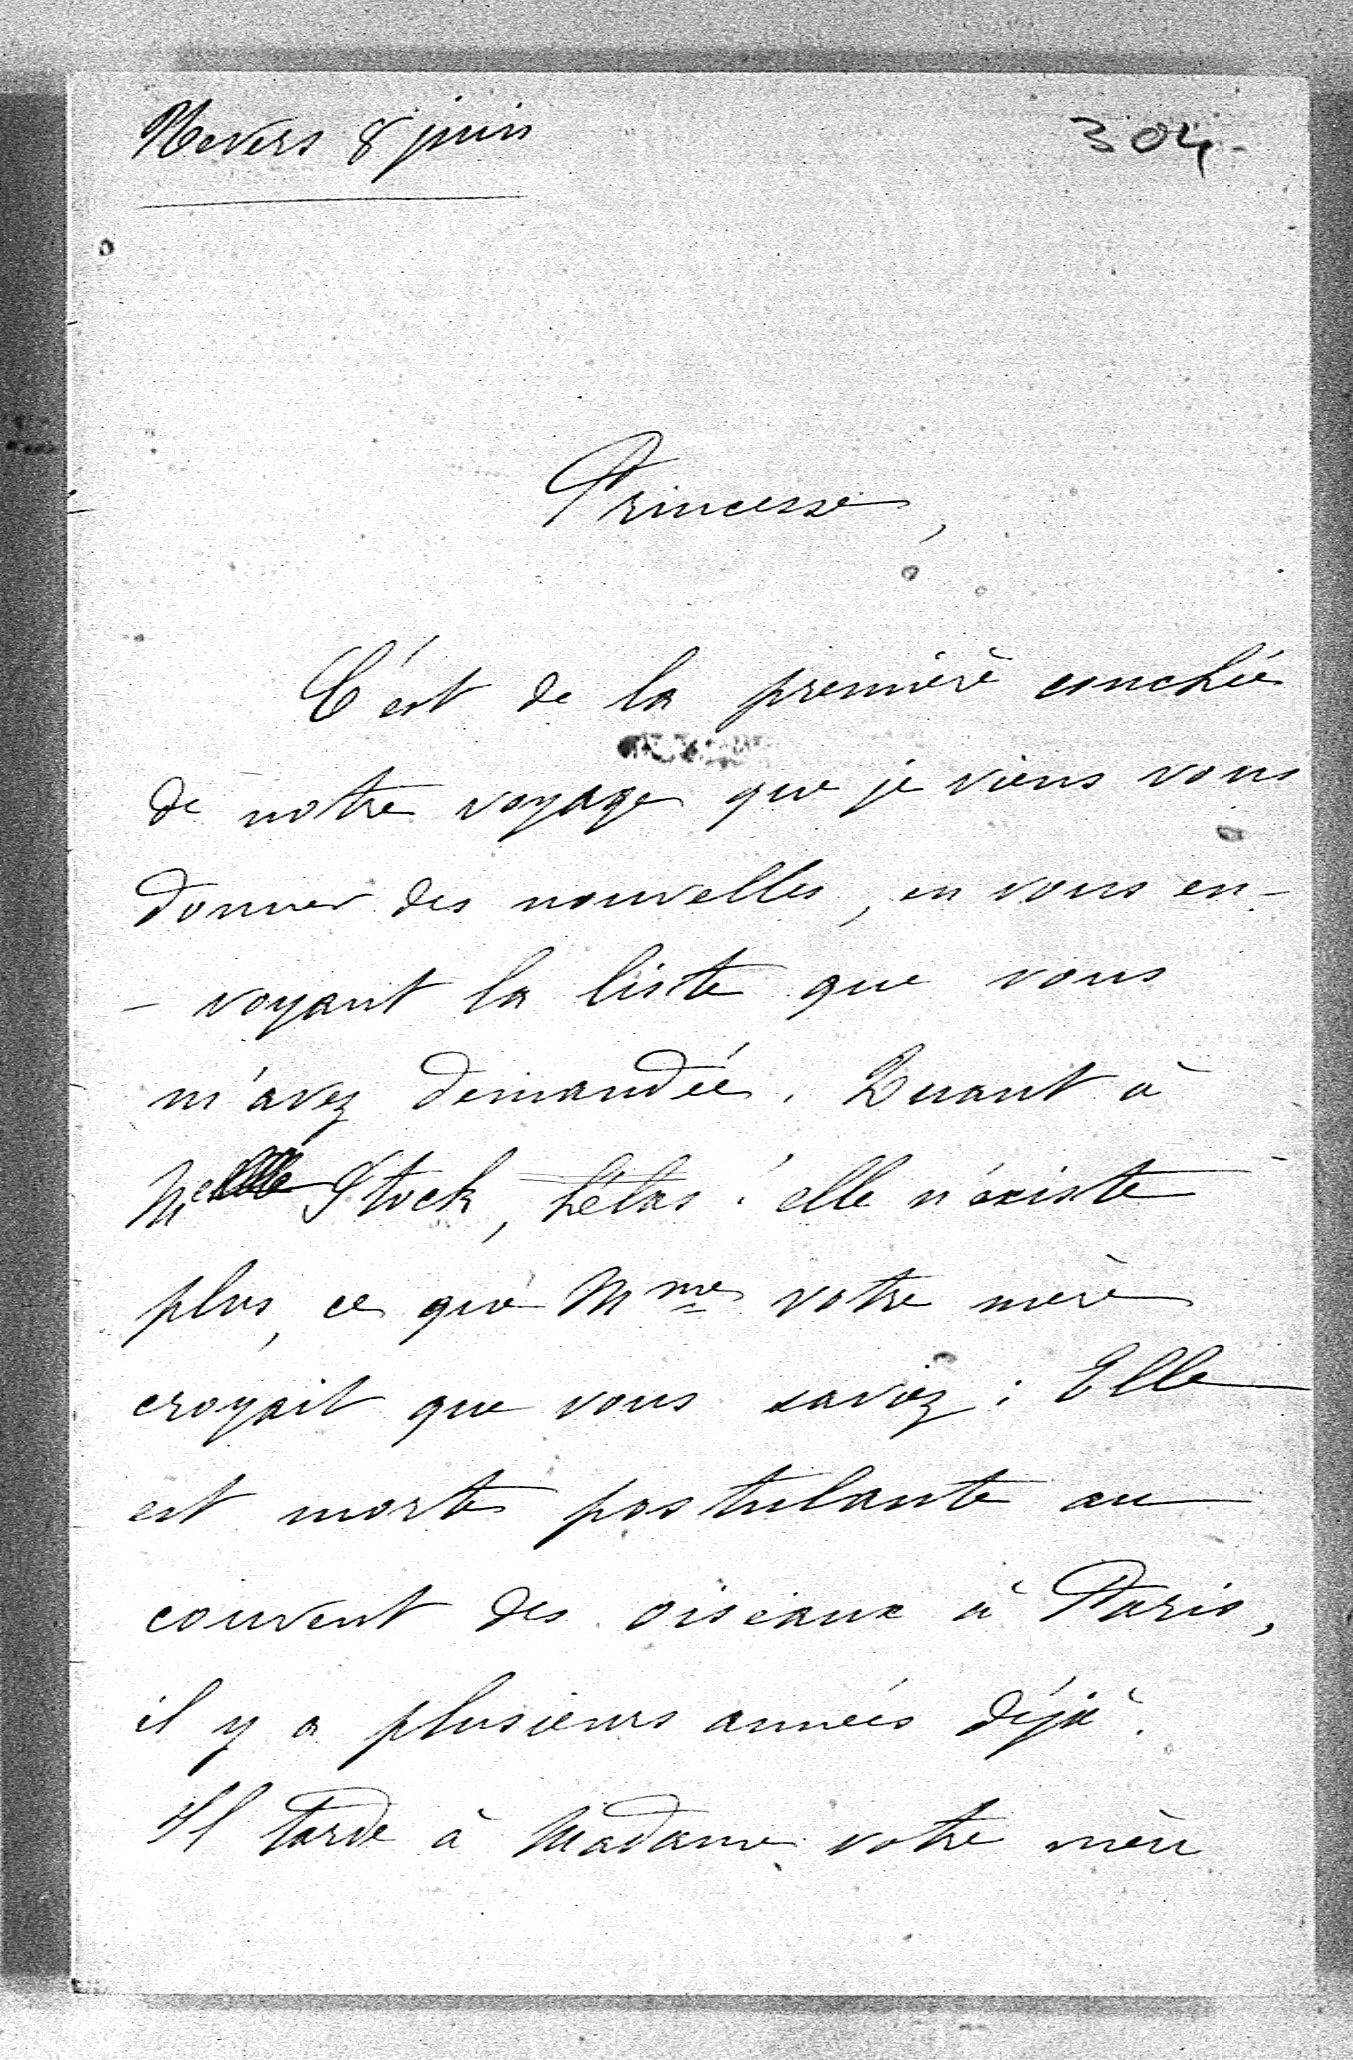 Nevers 8 juin
304.
Princesse,
C'est de la première couchée
de notre voyage que je viens vous
donner des nouvelles, en vous en-
- voyant la liste que vous
m'avez demandée. Quant à
Melle Stock, hélas ! elle n'existe
plus, ce que Mme votre mère
croyait que vous saviez : Elle
est morte postulante au
couvent des oiseaux à Paris,
il y a plusieurs années déjà.
Il tarde à Madame votre mère